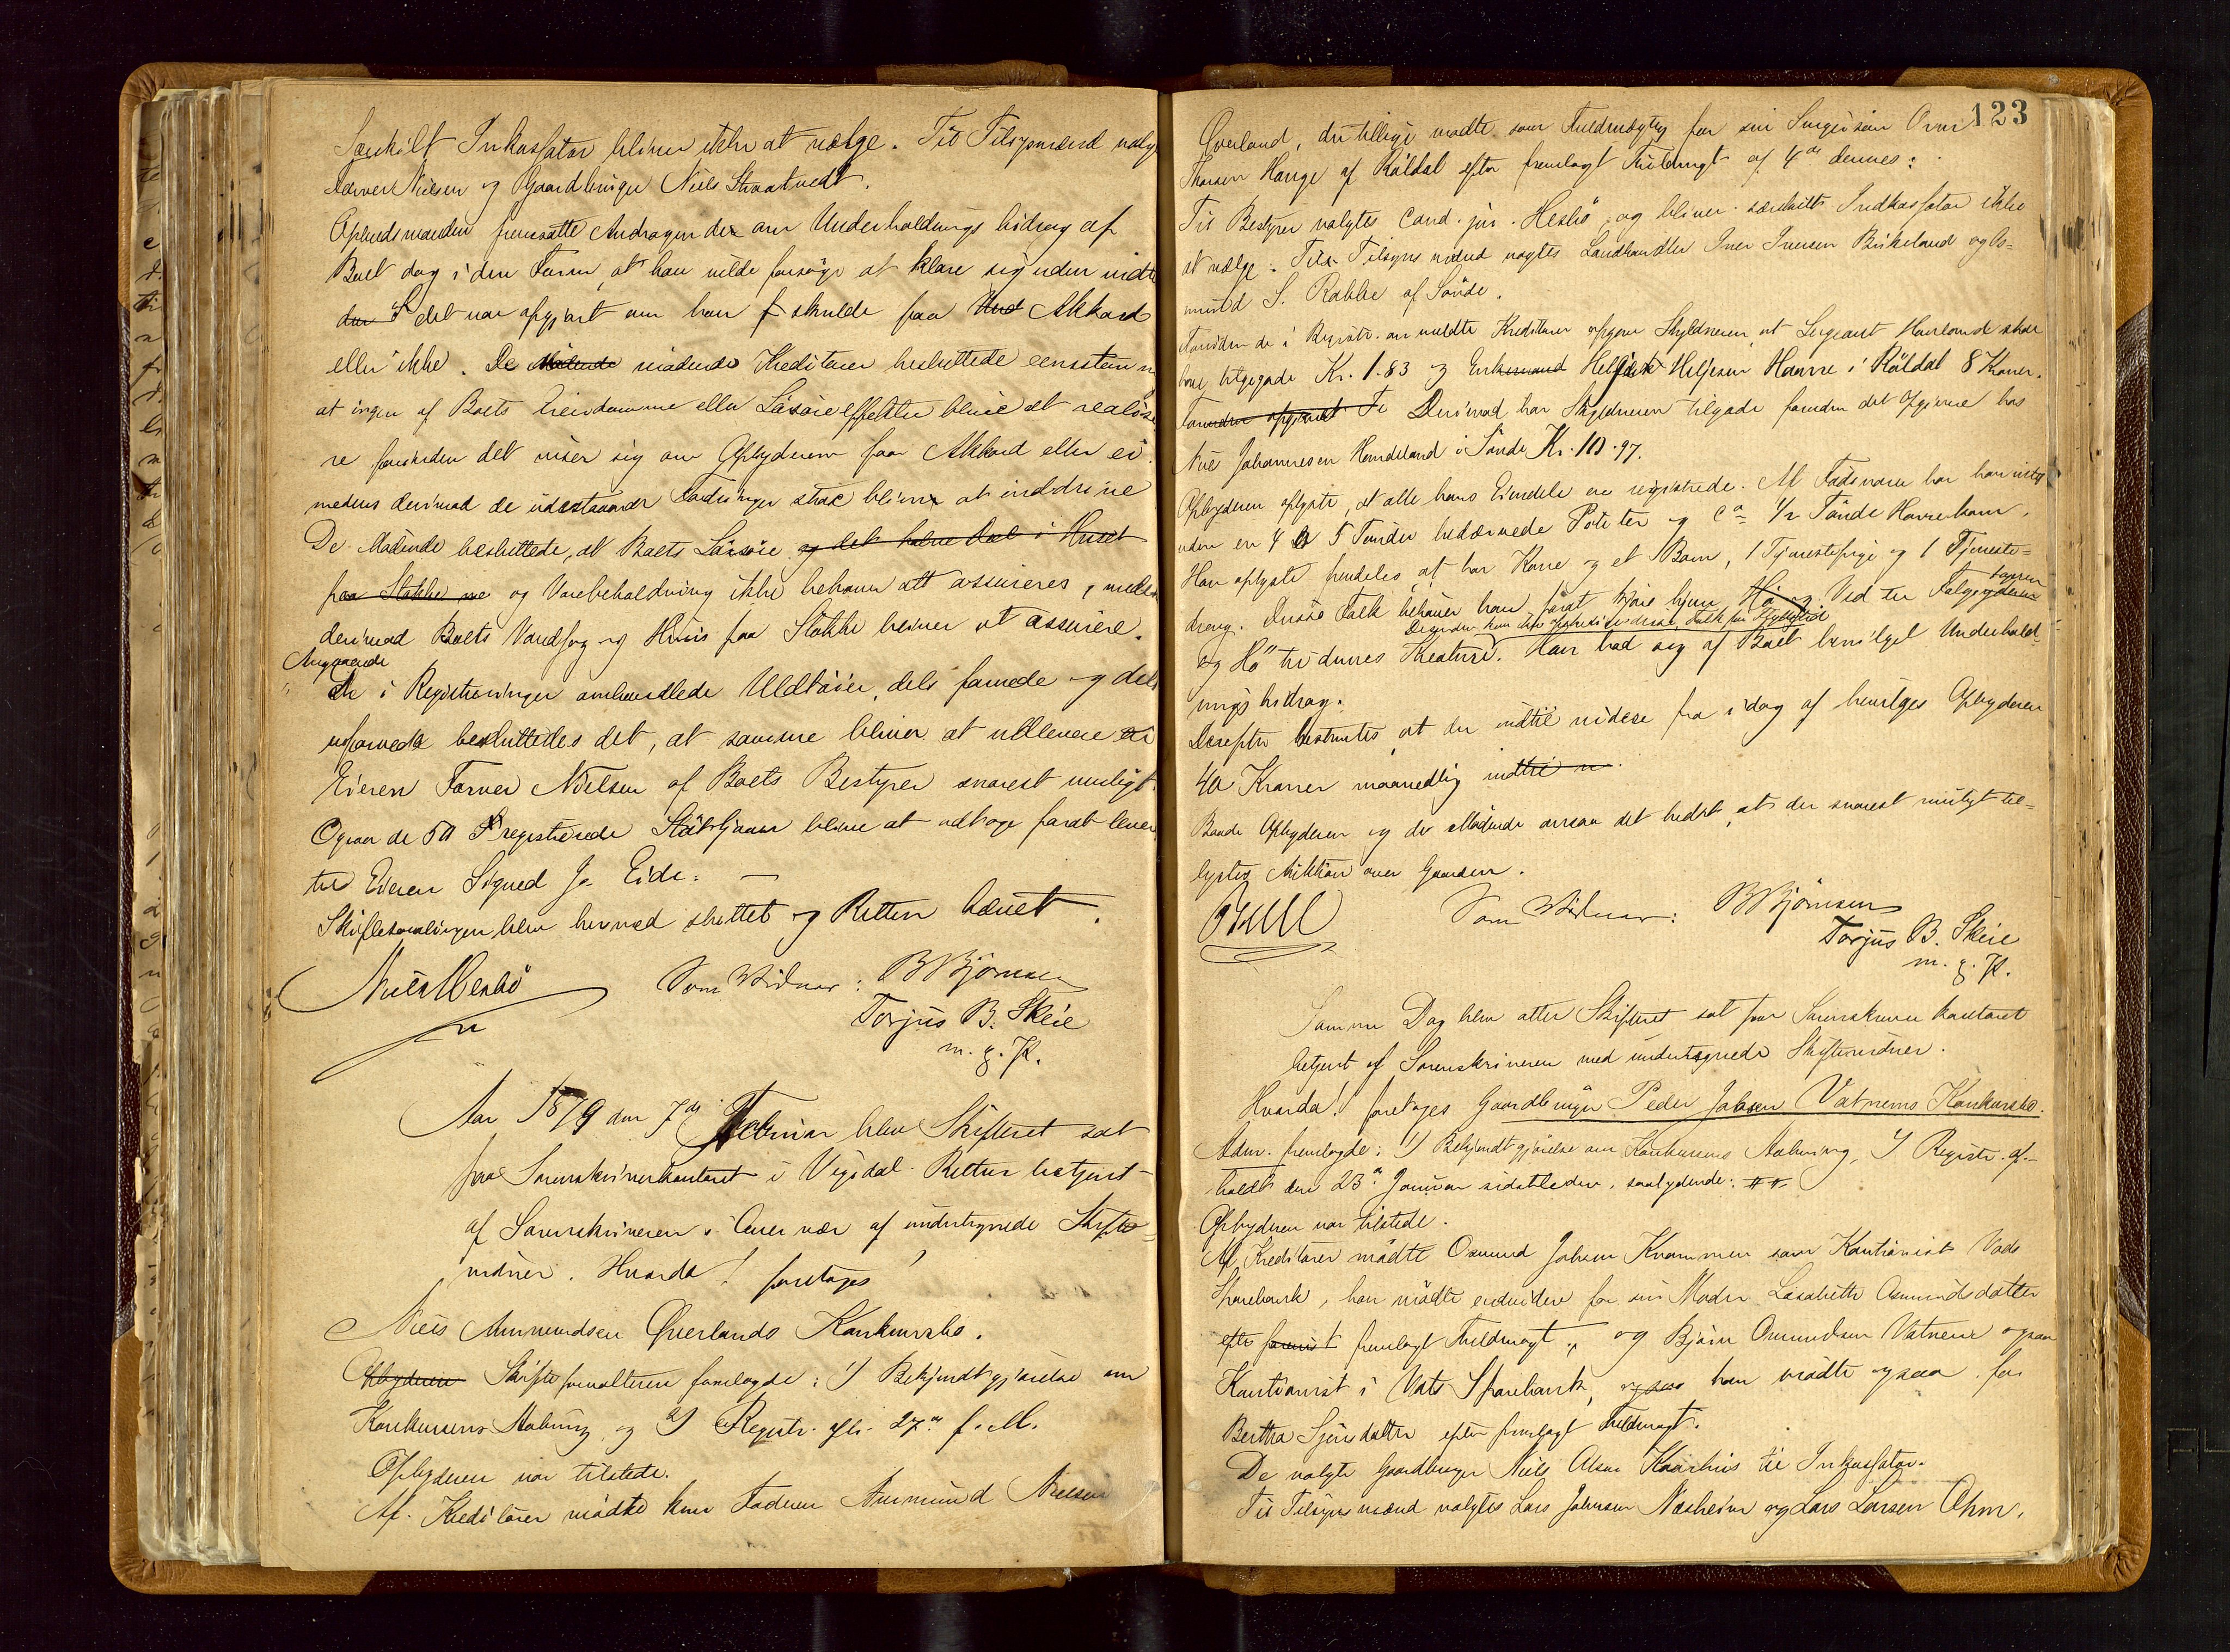 Særskilt Inkassator bliver ikke at vælge. Til Tilsynsmænd valg
Farver Nielsen og Gaardbruger Niels Straatvedt.
Opbudsmanden fremsatte Andragende om Underholdnings bidrag af
Boet dog i den Form, at han vilde forsøge at klare sig uden indtil
det var afgjort om han skulde faa Akkord
eller ikke. De mødende Kreditorer besluttede eensstemm
at ingen af Boets Eiendomme eller Løsøreeffekter blive at realise
re forinden det viser sig om Opbyderen faar Akkord eller ei.
medens derimod de udestaaende Fordringer strax bliver at inddrive
De Mødende besluttede, at Boets Løsøre og det halve Del i Huset
paa Stokke og Varebeholdning ikke behøver at assureres, medens
derimod Boets Vandsag og Huus paa Stokke bliver at assurere.
Angaaende
de i Registreringen omhandlede Uldtøier, dels farvede og dels
ufarvede besluttedes det, at samme bliver at udlevere
Eieren Farver Nielsen af Boets Bestyrer snarest muligt.
Ogsaa de 50 registrerede bliver at udtage forat lever
til Eieren Sigved J. Eide. —
Skiftesamlingen blev hermed sluttet og Retten hævet.
Niels Hesbø Som Vidner: B Bjørnsen
Torjus B. Skeie
m. g. P.
Aar 1879 den 7de Februar blev Skifteret sat
paa Sorenskriverkontoret i Vigsdal. Retten betjent
af Sorenskriveren i Overvær af undertegnede Skifte=
vidner. Hvorda! foretoges
Niels Ammundsen Øverlands Konkursbo.
Opbyderen Skifteforvalteren fremlagde: 1) Bekjendtgjørelse om
Konkursens Aabning og 2) Registr. afh. 27de f. M.
Opbyderen var tilstede.
Af Kreditorer mødte kun Faderen Ammund Nielsen
123
Øverland, der tillige mødte som Fuldmægtig for sin Svigersøn
Thorsen Hauge af Røldal efter fremlagt Fuldmagt af 4de dennes:
Til Bestyrer valgtes Cand. jur. Hesbø og bliver særskilt Indkassator ikke
at vælge. Til Tilsynsmænd valgtes Landhandler Iver Iversen Birkeland og As=
mund S. Rabbe af Søvde.
Foruden de i Registr. anmeldte Kreditorer opgav Skyldneren at Sergeant Havland skal
have tilgode Kr. 1.83 og Heljesen Havre i Røldal 8 Kroner.
Derimod har Skyldneren tilgode foruden det Opgivne hos
Johannesen Handeland i Søvde Kr. 10.97.
Opbyderen oplyste, at alle hans Eiendele ere registrerede. Af Fødevarer har han intet
uden en 4 a 5 Tønder bedærvede Poteter og ca 1/2 Tønde Havrekorn.
Han oplyste fremdeles at har Kone og et Barn, 1 Tjenestepige og 1 Tjeneste=
dreng. Disse Folk behøver han forat kjøre hjem Hø og Ved
og Hø til dennes Kreaturer. Han bad sig af Boet bevilget Underhold=
ningsbidrag.
Derefter bestemtes at der indtil videre fra idag af bevilges Opbyderen
40 Kroner maanedlig
Baade Opbyderen og de Mødende ansaa det bedst, at der snarest muligt til=
lystes Auktion over Gaarden.
Som Vidner: B Bjørnsen
Torjus B. Skeie
m. g. P.
Samme Dag blev atter Skifteret sat paa Sorenskriverkontoret
betjent af Sorenskriveren med undertegnede Skiftevidner.
Hvorda! foretoges Gaardbruger Peder Jobsen Vatnems Konkursbo.
Adm. fremlagde: 1) Bekjendtgjørelse om Konkursens Aabning, 2) Registr. af=
holdt den 23de Januar sidstleden, saalydende: ##.
Opbyderen var tilstede.
Af Kreditorer mødte Osmund Johsen Krammen som Kautionist Vats
Sparebank, han mødte endvidere for sin Moder Lisabeth Osmundsdatter
efter fremlagt Fuldmagt, og Bjørn Omundsen Vatnem ogsaa
Kautionist i Vats Sparebank, han mødte ogsaa for
Bertha Sjursdatter efter fremlagt Fuldmagt.
De valgte Gaardbruger Niels Olsen Kaarhus til Inkassator.
Til Tilsynsmænd valgtes Lars Johnsen Næsheim og Lars Larsen Ohm.